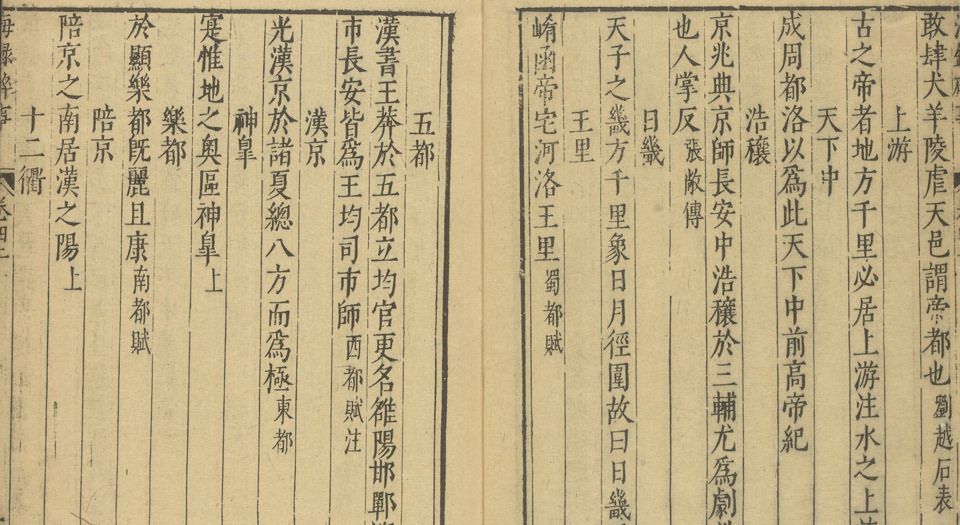 敢肆犬羊陵虐天邑謂帝都也劉越石表
上游
古之帝者地方千里必居上游注水之上
天下中
成周都洛以為此天下中前高帝紀
浩穰
京兆典京師長安中浩穰於三輔尤為劇
也人掌反張敞傳
日畿
天子之畿方千里象日月徑圍故曰日畿
王里
崤函帝宅河洛王里蜀都賦
五都
漢書王莽於五都立均官更名雒陽邯鄲
市長安皆為王均司市師西都賦注
漢京
光漢京於諸夏總八方而為極東都
神臯
寔惟地之奥區神臯上
樂都
於顯樂都旣麗且康南都賦
陪京
陪京之南居漢之陽上
十二衢
海録碎事 卷四上